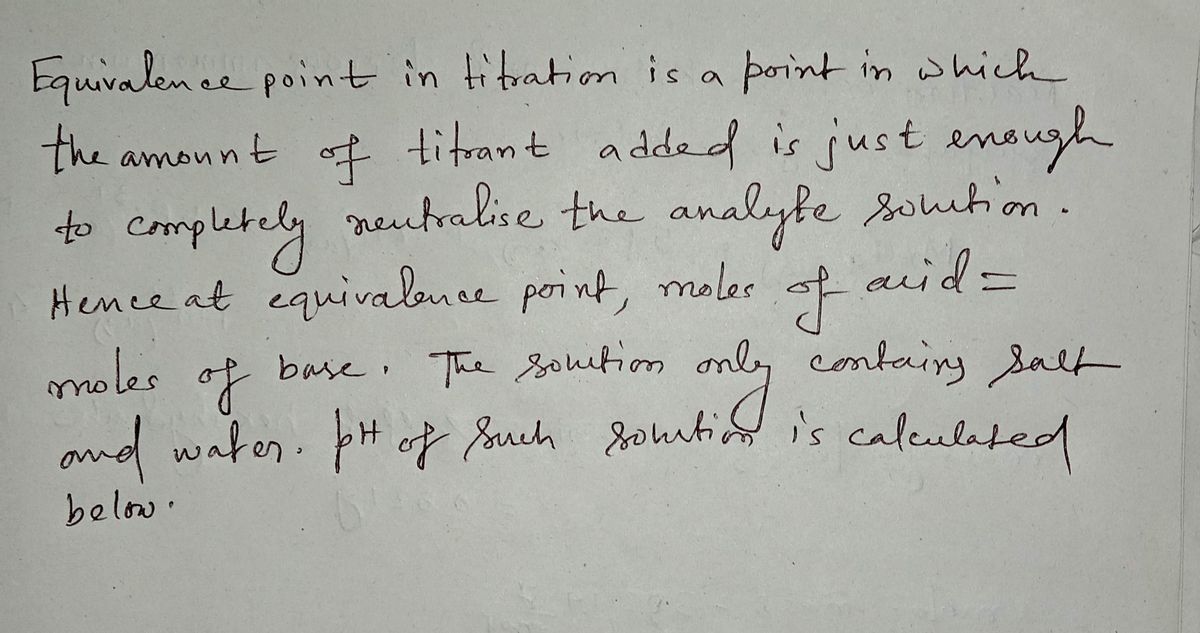 Equivalence point in titration is a point in which
the amount of titrant added is just enough
to completely neutralise the analyte solution.
Hence at equivalence point, moles of acid =
moles of base. The solution only contains salt
and water. pH of such solution is calculated
below.